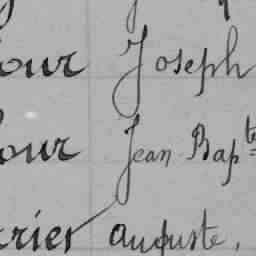 our Joseph
our Jean Bapte
rier auguste,